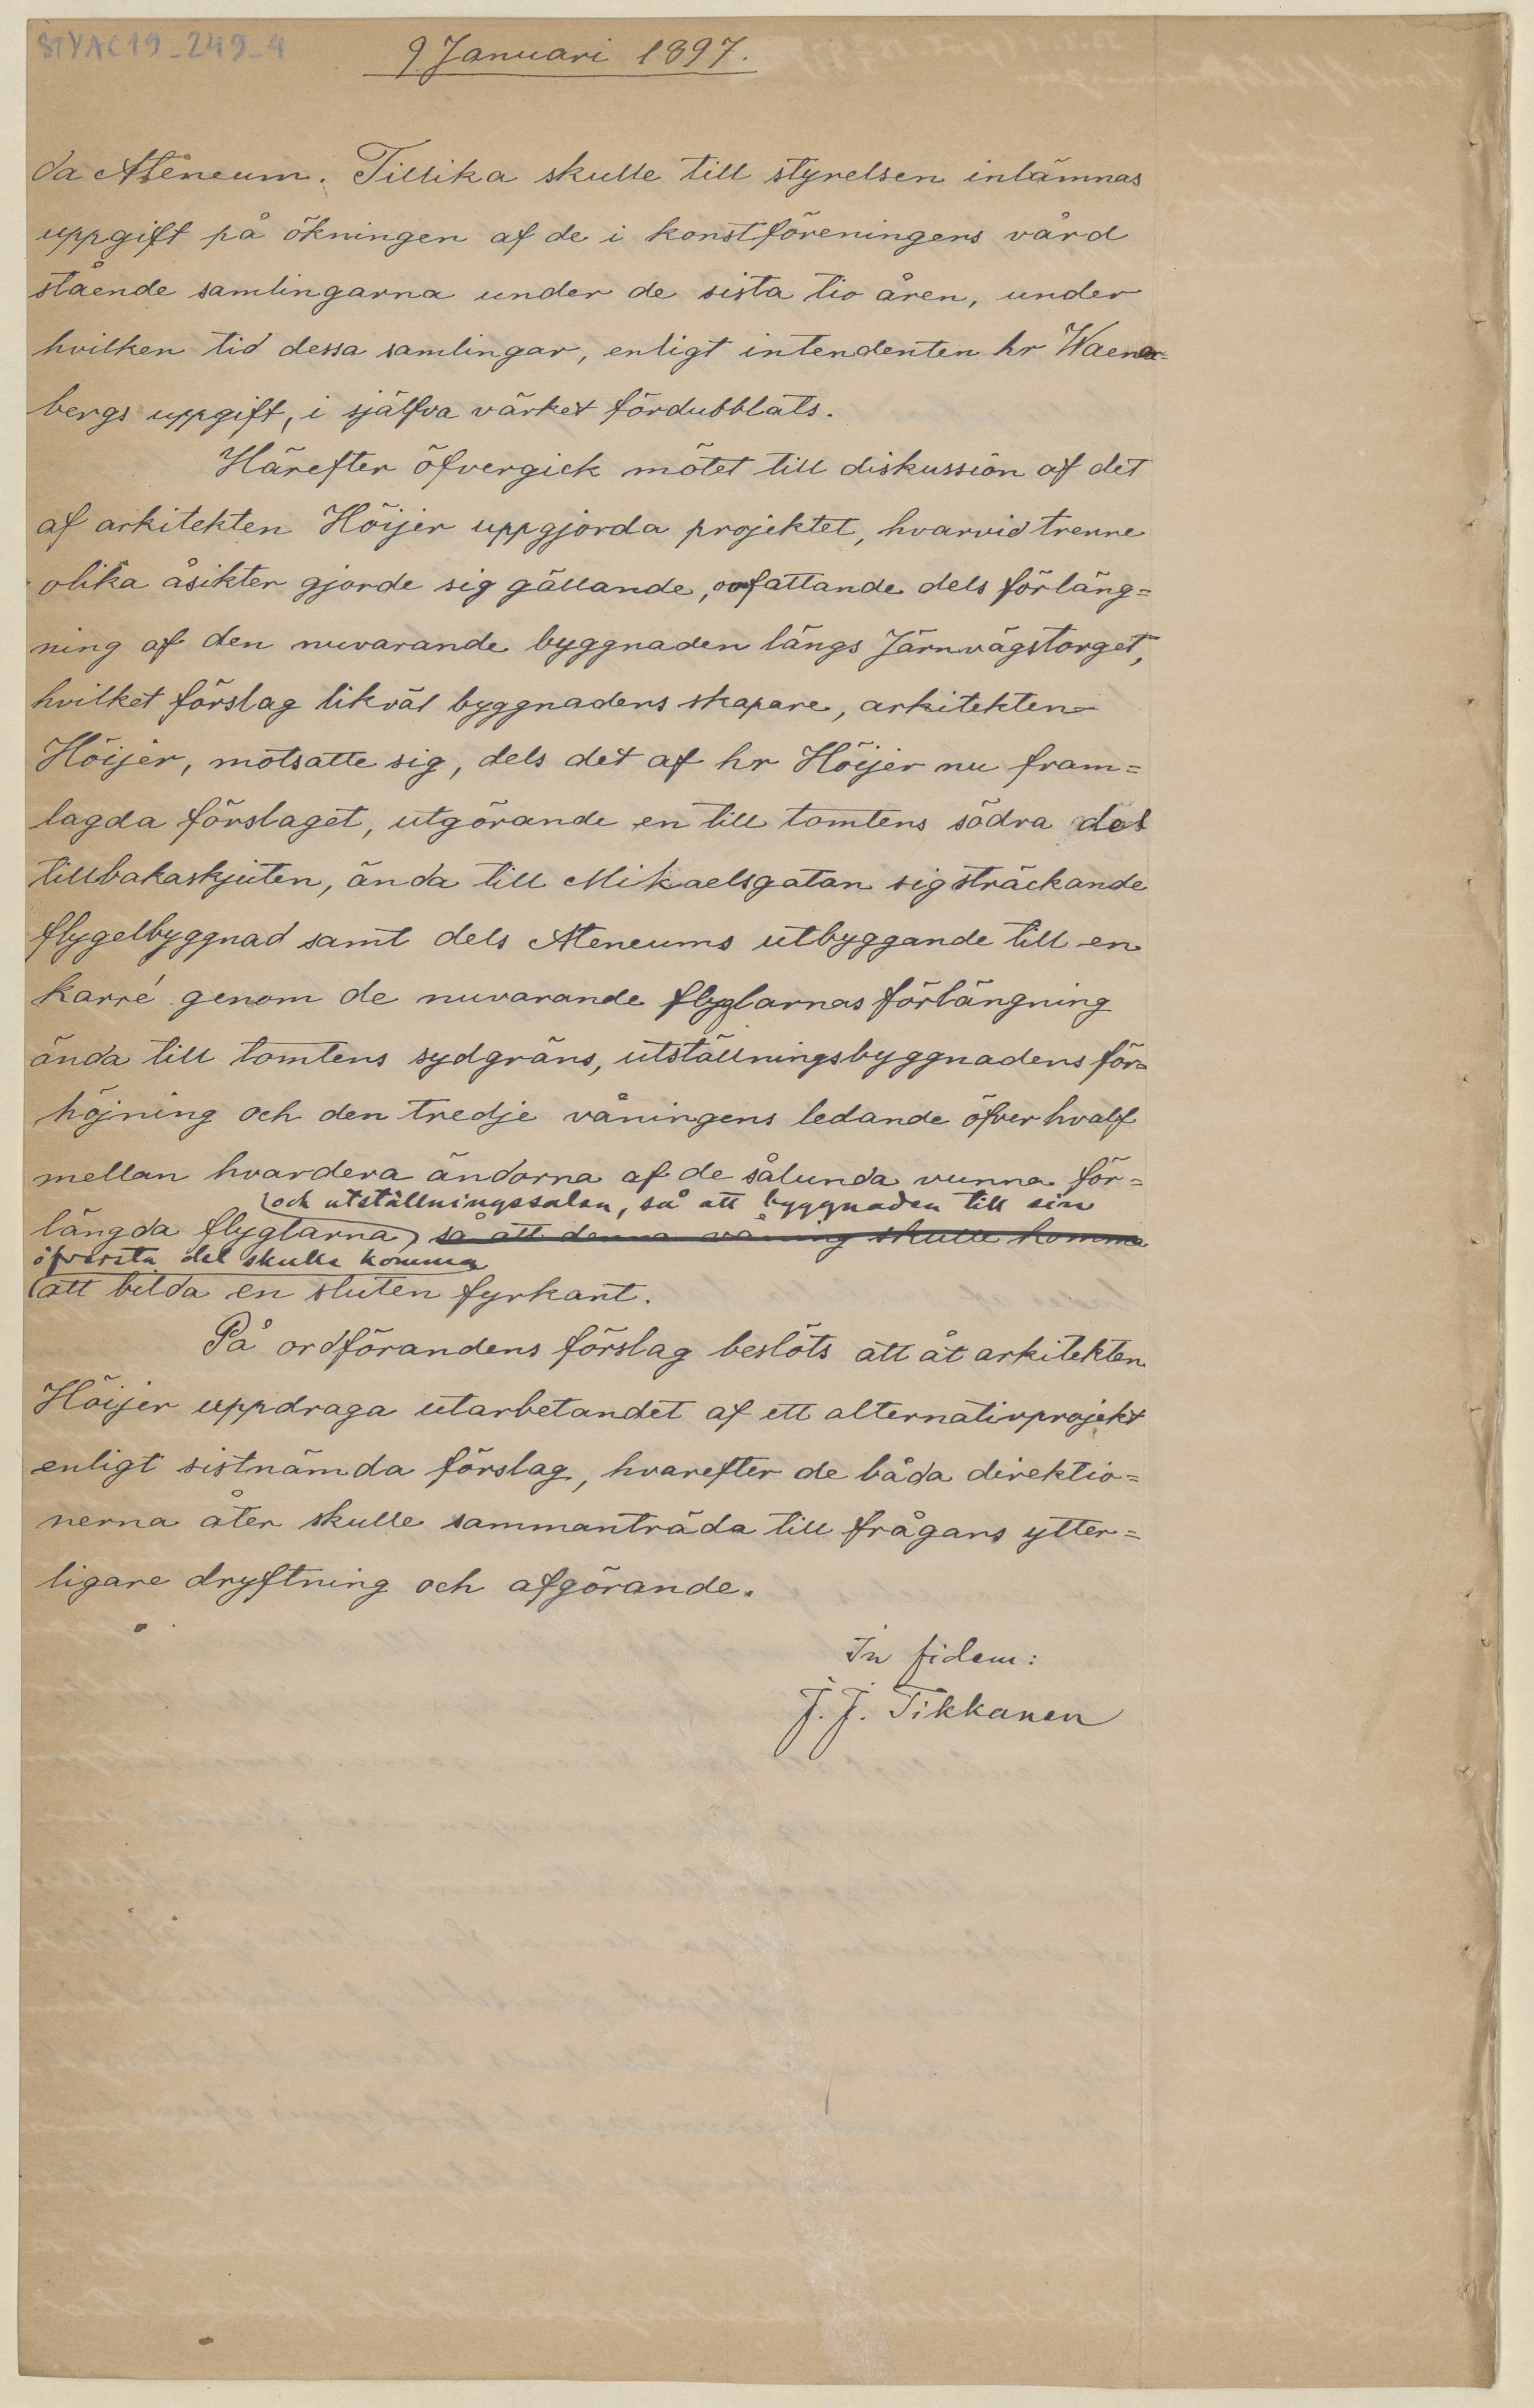 STYAC19_249_4
9 Januari 1897.
da Ateneum. Tillika skulle till styrelsen inlämnas
uppgift på ökningen af de i konstföreningens vård
stående samlingarna under de sista tio åren, under
hvilken tid dessa samlingar, enligt intendenten hr Waener=
bergs uppgift, i själfva värket fördubblats.
Härefter öfvergick mötet till diskussion af det
af arkitekten Höijer uppgjorda projektet, hvarvid trenne
olika åsikter gjorde sig gällande, omfattande dels förläng=
ning af den nuvarande byggnaden längs Järnvägstorget,
hvilket förslag likväl byggnadens skapare, arkitekten
Höijer, motsatte sig, dels det af hr Höijer nu fram=
lagda förslaget, utgörande en till tomtens södra del
tillbakaskjuten, ända till Mikaelsgatan sig sträckande
flygelbyggnad samt dels Ateneums utbyggande till en
karré genom de nuvarande flyglarnas förlängning
ända till tomtens sydgräns, utställningsbyggnadens för=
höjning och den tredje våningens ledande öfver hvalf
mellan hvardera ändorna af de sålunda vunna för=
och utställningssalen, så att byggnaden till sin
längda flyglarna, så att denna våning skulle komma
öfversta del skulle komma
att bilda en sluten fyrkant.
På ordförandens förslag beslöts att åt arkitekten
Höijer uppdraga utarbetandet af ett alternativprojekt
enligt sistnämda förslag, hvarefter de båda direktio=
nerna åter skulle sammanträda till frågans ytter=
ligare dryftning och afgörande.
In fidem:
J. J. Tikkanen